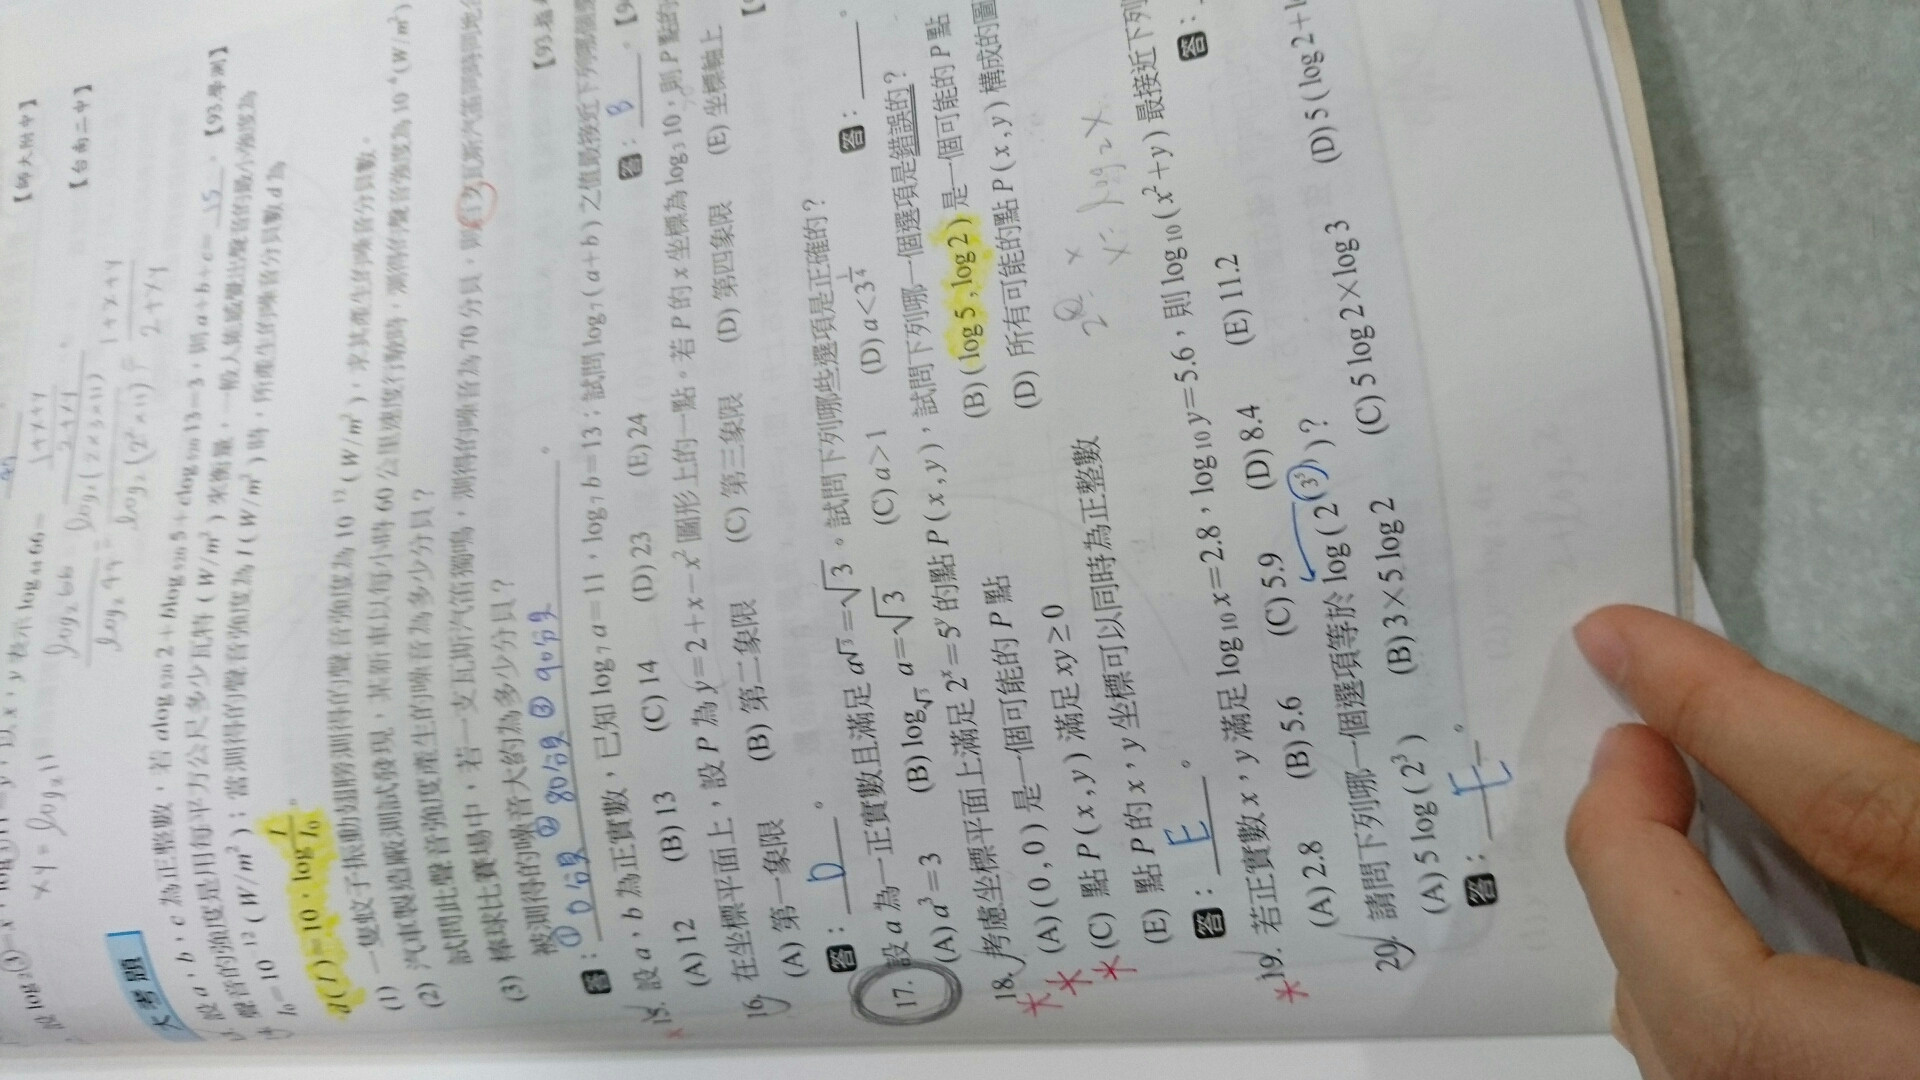 【師大附中】
【台南二中】
表示 log₄₄66=
xy = log₂11
log₂66
log₂44
log₂(2×3×11)
log₂(2²×11)
1+x+y
2+xy
大考題
設 a，b，c 為正整數，若 alog₅₂₀2+blog₅₂₀5+clog₅₂₀13=3，則 a+b+c= 15 。【93.學測】
聲音的強度是用每平方公尺多少瓦特 (W/m²) 來衡量，一般人能感覺出聲音的最小強度為
I₀=10⁻¹² (W/m²)；當測得的聲音強度為 I (W/m²) 時，所產生的噪音分貝數 d 為
d(I)=10．log I/I₀。
(1) 一隻蚊子振動翅膀測得的聲音強度為 10⁻¹² (W/m²)，求其產生的噪音分貝數。
(2) 汽車製造廠測試發現，某新車以每小時 60 公里速度行駛時，測得的聲音強度為 10⁻⁴ (W/m²)，
試問此聲音強度產生的噪音為多少分貝？
(3) 棒球比賽場中，若一支瓦斯汽笛獨鳴，測得的噪音為 70 分貝，則
被測得的噪音大約為多少分貝？
答：① 0分貝 ② 80分貝 ③ 90分貝 。
15. 設 a，b 為正實數，已知 log₇a=11，log₇b=13；試問 log₇(a+b) 之值最接近下列哪個
(A) 12 (B) 13 (C) 14 (D) 23 (E) 24
答： B 。
16. 在坐標平面上，設 P 為 y=2+x−x² 圖形上的一點。若 P 的 x 坐標為 log₃10，則 P 點的
(A) 第一象限 (B) 第二象限 (C) 第三象限 (D) 第四象限 (E) 坐標軸上
答： D 。
17. 設 a 為一正實數且滿足 a^√3=√3。試問下列哪些選項是正確的？
(A) a³=3 (B) log_√3 a=√3 (C) a>1 (D) a<3^(1/4)
答： 。
18. 考慮坐標平面上滿足 2ˣ=5ʸ 的點 P(x,y)，試問下列哪一個選項是錯誤的？
(A) (0,0) 是一個可能的 P 點 (B) (log5,log2) 是一個可能的 P 點
(C) 點 P(x,y) 滿足 xy≥0 (D) 所有可能的點 P(x,y) 構成的圖
(E) 點 P 的 x，y 坐標可以同時為正整數
答： E 。
19. 若正實數 x，y 滿足 log₁₀x=2.8，log₁₀y=5.6，則 log₁₀(x²+y) 最接近下列
(A) 2.8 (B) 5.6 (C) 5.9 (D) 8.4 (E) 11.2
答：
20. 請問下列哪一個選項等於 log(2^(3⁵))？
(A) 5log(2³) (B) 3×5log2 (C) 5log2×log3 (D) 5(log2+l
答： E 。